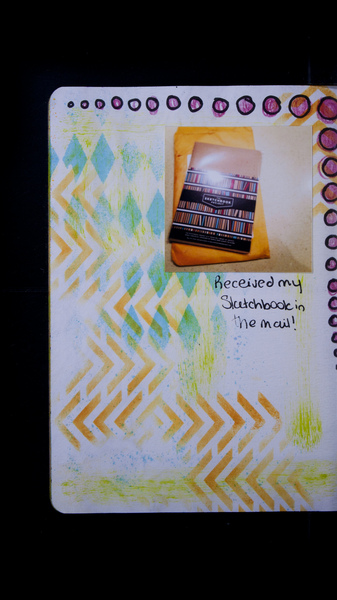 SKETCHBOOK
Received my
Sketchbook in
the mail!